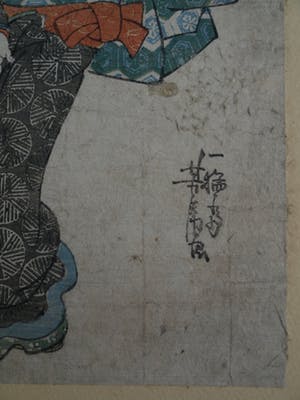 一猛斎
芳虎画